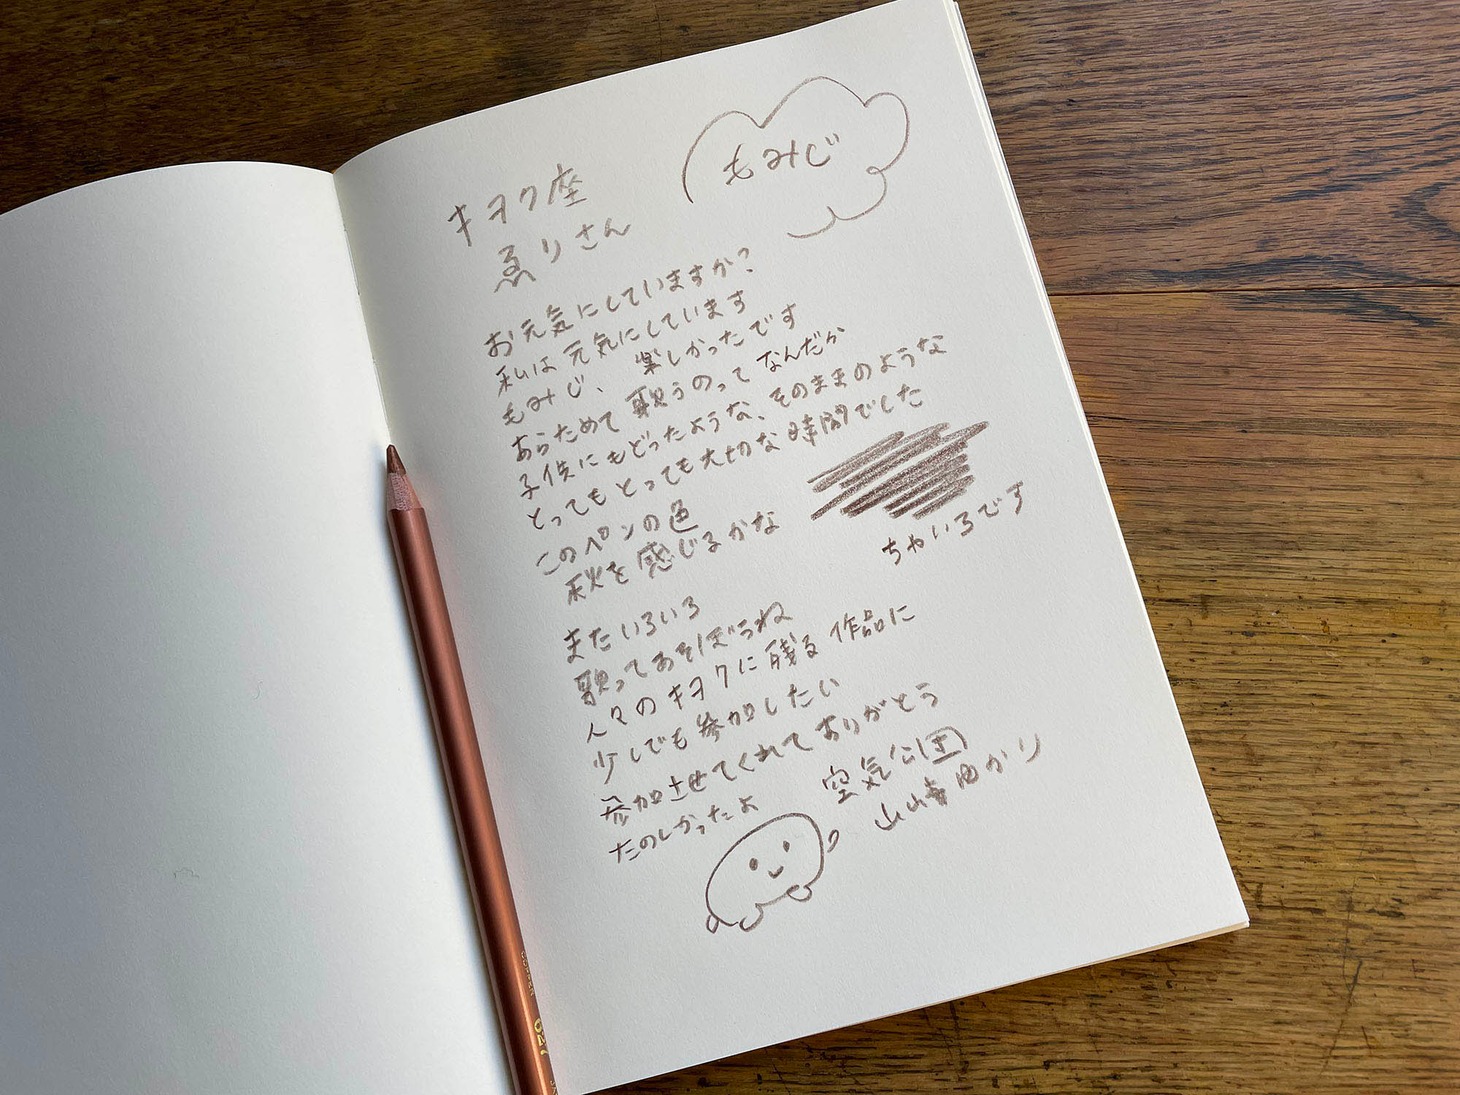 もみじ
キヲク座
ゑりさん
お元気にしていますか?
私は元気にしています
もみじ、楽しかったです
あらためて歌うのってなんだか
子供にもどったような、そのままのような
とってもとっても大切な時間でした
このペンの色
秋を感じるかな
ちゃいろです
またいろいろ
歌ってあそぼうね
人々のキヲクに残る作品に
少しでも参加したい
参加させてくれてありがとう
たのしかったよ
空気公団
山崎ゆかり